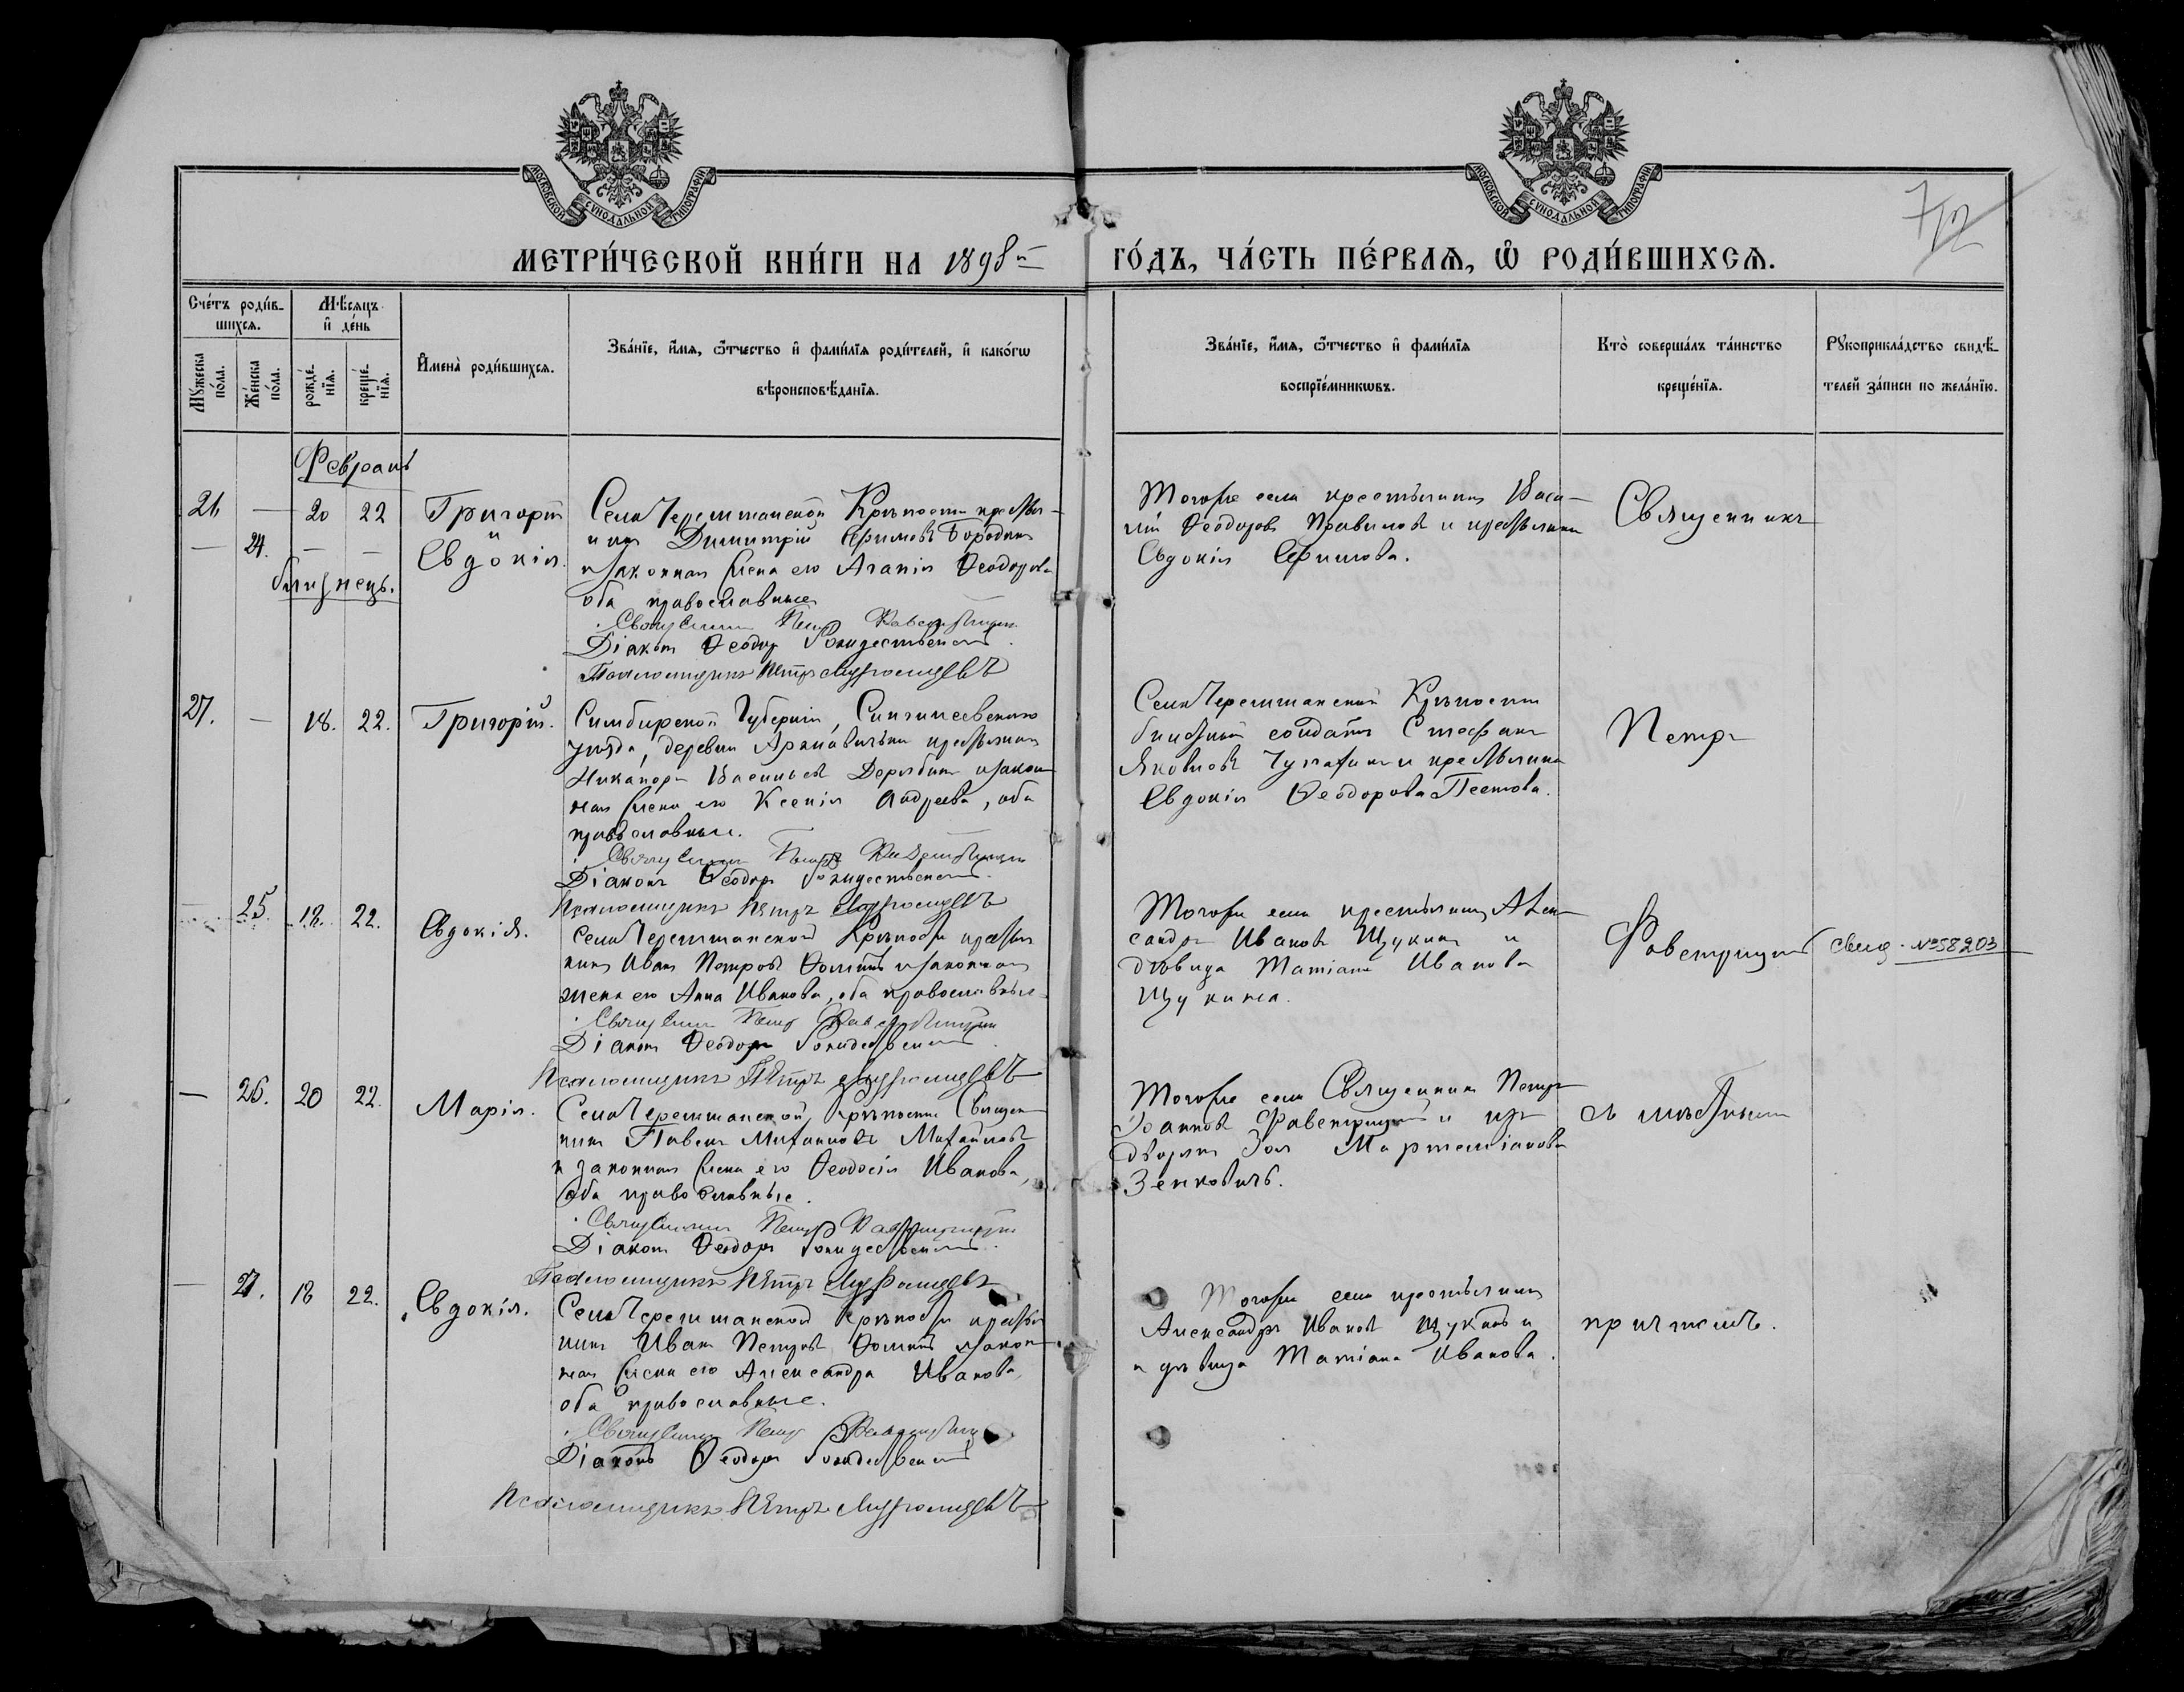 МОСКОВСКОЙ СУНОДАЛЬНОЙ ТИПОГРАФІИ
МОСКОВСКОЙ СУНОДАЛЬНОЙ ТИПОГРАФІИ
МЕТРИ́ЧЕСКОЙ КНИ́ГИ НА 1898й ГО́ДЪ, ЧА́СТЬ ПЕ́РВАѦ, Ѡ РОДИ́ВШИХСѦ.
Сче́тъ роди́в-
шихсѧ.
Му́жеска по́ла.
Же́нска по́ла.
Мѣ́сѧцъ
и де́нь
рожде́нїѧ.
креще́нїѧ.
Имена̀ роди́вшихсѧ.
Зва́нїе, и́мѧ, ѻ́тчество и фами́лїѧ роди́телей, и како́гѡ
вѣроисповѣ́данїѧ.
Зва́нїе, и́мѧ, ѻ́тчество и фами́лїѧ
воспрїе́мникѡвъ.
Кто̀ соверша́лъ та́инство
креще́нїѧ.
Рꙋкоприкла́дство свидѣ́-
телей за́писи по жела́нїю.
Февраль
— 20 22 Григорій
и
— 24. — — Евдокія.
близнецъ.
Села Черемшанской Крѣпости крестья-
нинъ Димитрій Бородинъ
и законная жена его Агапія Ѳеодорова
оба православные
Священникъ Петръ Фаветрицкій
Діаконъ Ѳеодоръ Рождественскій
Псаломщикъ Петръ
Тогоже села крестьянинъ Васи-
лій Ѳеодоровъ и крестьянка
Евдокія Ефимова.
Священникъ
— 18. 22. Григорій.
Симбирской Губерніи, Сингилеевскаго
уѣзда, деревни крестьянинъ
Никаноръ Васильевъ и закон
ная жена его Ксенія Андреева, оба
православные.
Священникъ Петръ Фаветрицкій
Діаконъ Ѳеодоръ Рождественскій
Псаломщикъ Петръ
Села Черемшанской Крѣпости
билетный солдатъ Стефанъ
Яковлевъ и крестьянка
Евдокія Ѳеодорова Пестова.
Петръ
— 25. 18. 22. Евдокія.
Села Черемшанской Крѣпости крестья
нинъ Иванъ Петровъ и законная
жена его Анна Иванова, оба православные
Священникъ Петръ Фаветрицкій
Діаконъ Ѳеодоръ Рождественскій
Псаломщикъ Петръ
Тогоже села крестьянинъ Алек
сандръ Ивановъ Щукинъ и
дѣвица Татіана Иванова
Щукина.
Фаветрицкій
Свид. № 58203
— 26. 20 22. Марія.
Села Черемшанской Крѣпости Священ
никъ Павелъ Михаиловъ Михайловъ
и законная жена его Ѳеодосія Иванова,
оба православные.
Священникъ Петръ Фаветрицкій
Діаконъ Ѳеодоръ Рождественскій
Псаломщикъ Петръ
Тогоже села Священникъ Петръ
Іоанновъ Фаветрицкій и изъ
дворянъ Зоя
Зенковичъ.
съ мѣстнымъ
— 27. 18 22. Евдокія.
Села Черемшанской Крѣпости крестья
нинъ Иванъ Петровъ и закон
ная жена его Александра Иванова,
оба православные.
Священникъ Петръ Фаветрицкій
Діаконъ Ѳеодоръ Рождественскій
Псаломщикъ Петръ
Тогоже села крестьянинъ
Александръ Ивановъ Щукинъ и
и дѣвица Татіана Иванова.
причтомъ.